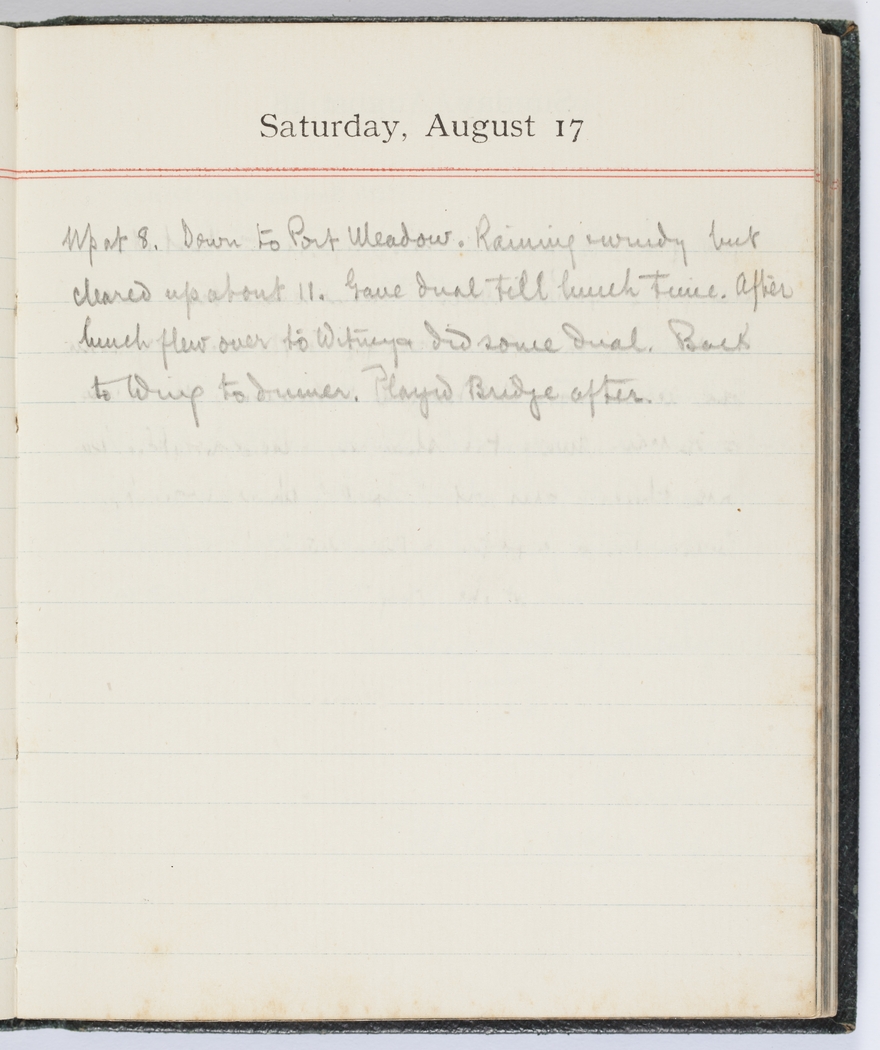 Saturday, August 17
Up at 8. Down to Port Meadow. Raining & windy but
cleared up about 11. Gave dual till lunch time. After
lunch flew over to Witney & did some dual. Back
to Wing to dinner. Played Bridge after.